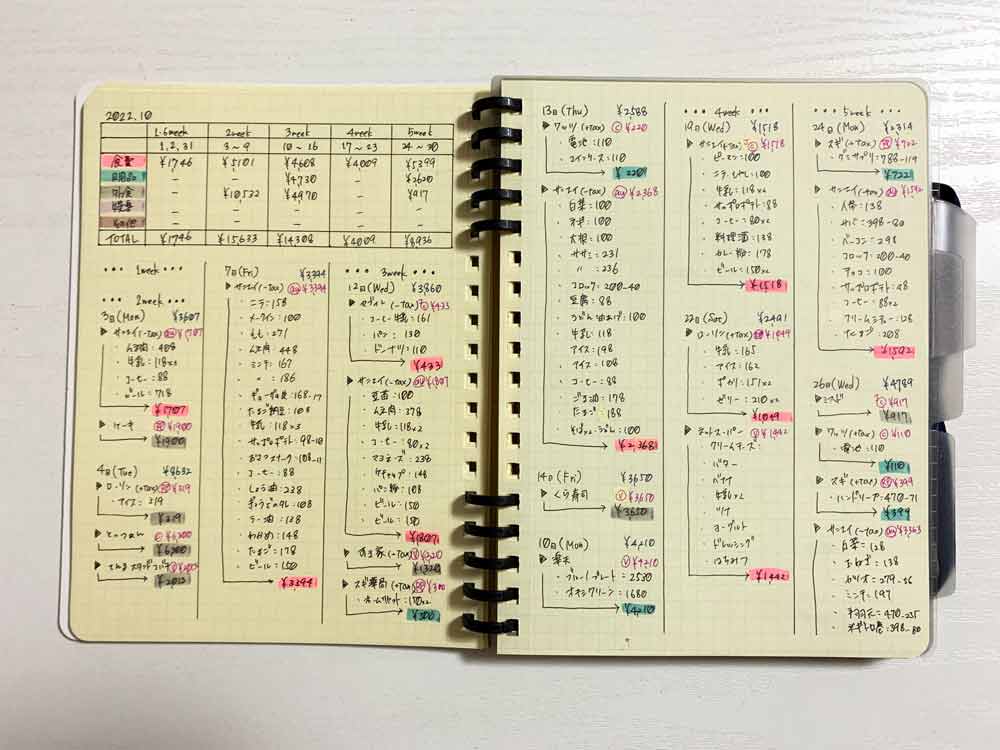 2022.10
1.6week 2week 3week 4week 5week
1, 2, 31 3～9 10～16 17～23 24～30
食費 ¥1746 ¥5101 ¥4608 ¥4009 ¥5399
日用品 - - ¥4730 - ¥2620
外食 - ¥10,532 ¥4970 - ¥917
- - - - -
その他 - - - - -
TOTAL ¥1746 ¥15,633 ¥14308 ¥4009 ¥8936
••• 1week •••
••• 2week •••
3日(Mon) ¥3607
▶サンエイ(-tax) ¥1707
・牛乳:118×2
・コーヒー:88
・ビール:718
→¥1707
▶ケーキ ¥1900
→¥1900
4日(Tue) ¥8632
▶ローソン(+tax) ¥319
・アイス:319
→¥319
¥6200
→¥6200
→¥2013
7日(Fri) ¥3394
▶サンエイ(-tax) ¥3394
・ニラ:158
・メークイン:100
・もも:271
・ミンチ:167
・〃:186
・ギョーザの皮:168-17
・たまご納豆:108
・牛乳:118×3
・サッポロポテト:98-10
・コーヒー:88
・しょう油:238
・ぎょうざのタレ:108
・ラー油:128
・わかめ:148
・たまご:178
・ビール:150
→¥3394
••• 3week •••
12日(Wed) ¥3860
▶セブイレ(-tax) ¥433
・コーヒー牛乳:161
・パン:130
・ドーナツ:110
→¥433
▶サンエイ(-tax) ¥1807
・豆苗:100
・牛乳:118×2
・コーヒー:80×2
・マヨネーズ:238
・ケチャップ:148
・パン粉:108
・ビール:150
・ビール:190
→¥1807
¥1320
→¥1320
▶スギ薬局(+tax) ¥300
→¥300
13日(Thu) ¥2588
▶ワッツ(+tax) ¥220
・電池:110
・コインケース:110
→¥220
▶サンエイ(-tax) ¥2,368
・白菜:100
・ネギ:100
・大根:100
・ササミ:231
・〃:236
・コロッケ:200-40
・豆腐:88
・うどん油あげ:100
・牛乳:118
・アイス:198
・アイス:108
・コーヒー:88
・ごま油:178
・たまご:188
・そば×2・うどん:100
→¥2,368
14日(Fri) ¥3650
▶くら寿司 ¥3650
→¥3650
10日(Mon) ¥4210
▶楽天 ¥4210
・ブルーノプレート:2530
・オキシクリーン:1680
→¥4210
••• 4week •••
19日(Wed) ¥1518
▶サンエイ(-tax) ¥1518
・ピーマン:100
・ニラ、もやし:100
・牛乳:118×2
・サッポロポテト:88
・コーヒー:80×2
・料理酒:138
・カレー粉:178
・ビール:150×2
→¥1518
22日(Sat) ¥2491
▶ローソン(+tax) ¥1049
・牛乳:165
・アイス:162
・ポカリ:151×2
・ゼリー:210×2
→¥1049
▶ネットスーパー ¥1442
・クリームチーズ:
・バター
・バナナ
・牛乳×2
・ツナ
・ヨーグルト
・ドレッシング
・はちみつ
→¥1442
••• 5week •••
24日(Mon) ¥2314
▶スギ(+tax) ¥722
・グミサプリ:788-119
→¥722
▶サンエイ(-tax) ¥1592
・人参:138
・サバ:398-80
・ベーコン:298
・コロッケ:200-40
・チョコ:100
・サッポロポテト:98
・コーヒー:88×2
・クリームシチュー:128
・たまご:208
→¥1592
26日(Wed) ¥4789
▶ミスド ¥917
→¥917
▶ワッツ(+tax) ¥110
・電池:110
→¥110
▶スギ(+tax) ¥399
・ハンドソープ:470-71
→¥399
▶サンエイ(-tax) ¥3363
・白菜:128
・おねぎ:138
・カツオ:279-56
・ミンチ:197
・手羽元:470-235
・ネギトロ巻:398-80